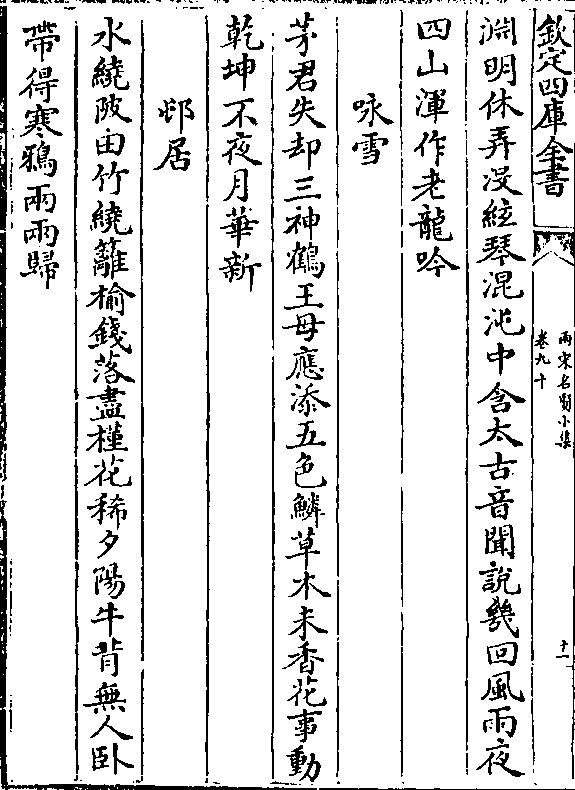 欽定四庫全書
兩宋名賢小集
卷九十
十一
淵明休弄没絃琴混沌中含太古音聞説幾回風雨夜
四山渾作老龍吟
咏雪
茅君失却三神鶴王母應添五色鱗草木未香花事動
乾坤不夜月華新
邨居
水繞陂田竹繞籬榆錢落盡槿花稀夕陽牛背無人卧
帶得寒鴉兩兩歸